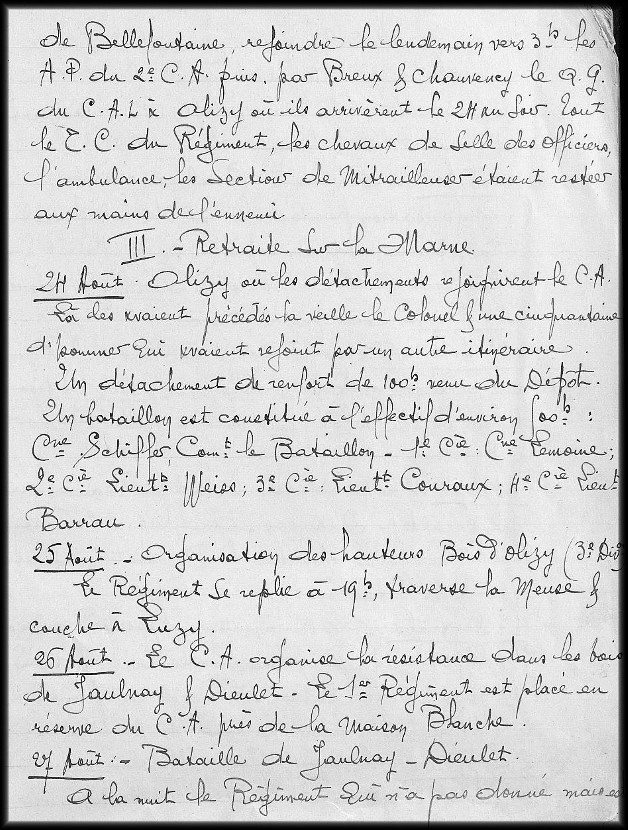 de Bellefontaine, rejoindre le lendemain vers 3h les
A.P. du 2e C.A. puis, par Breux & Chauvency le Q.G.
du C.A. à Olizy où ils arrivèrent le 24 au soir. Tout
le T.C. du Régiment, les chevaux de selle des officiers,
l'ambulance, les Sections de Mitrailleuses étaient restées
aux mains de l'ennemi.
III. - Retraite sur la Marne
24 Août. Olizy où les détachements rejoignirent le C.A.
les avaient précédés la veille le Colonel & une cinquantaine
d'hommes qui avaient rejoint par un autre itinéraire.
Un détachement de renfort de 100h venu du Dépôt.
Un bataillon est constitué à l'effectif d'environ 500h :
Cne Schiffer, Comt le Bataillon - 1e Cie : Cne Lemoine ;
2e Cie Lieutt Weiss ; 3e Cie : Lieutt Couraux ; 4e Cie Lieut
Barrau.
25 Août. - Organisation des hauteurs Bois d'Olizy (3e Div
Le Régiment se replie à 19h, traverse la Meuse &
couche à Luzy.
26 Août. - Le C.A. organise la résistance dans les bois
de Jaulnay & Dieulet - Le 1er Régiment est placé en
réserve du C.A. près de la Maison Blanche.
27 Août : - Bataille de Jaulnay - Dieulet.
A la nuit le Régiment qui n'a pas donné mais